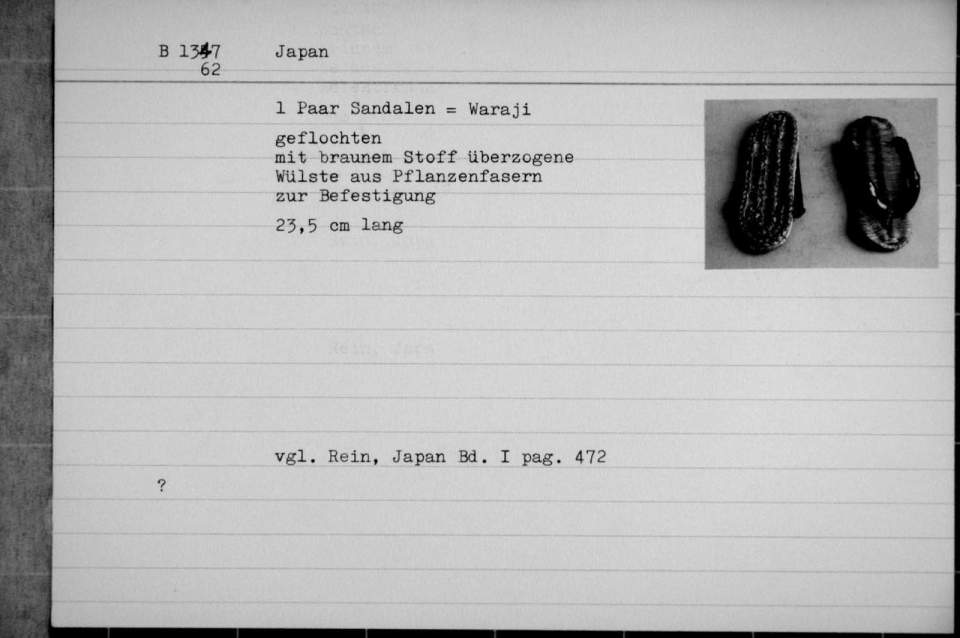 Japan
62
1 Paar Sandalen = Waraji
geflochten
mit braunem Stoff überzogene
Wülste aus Pflanzenfasern
zur Befestigung
23,5 cm lang
vgl. Rein, Japan Bd. I pag. 472
?